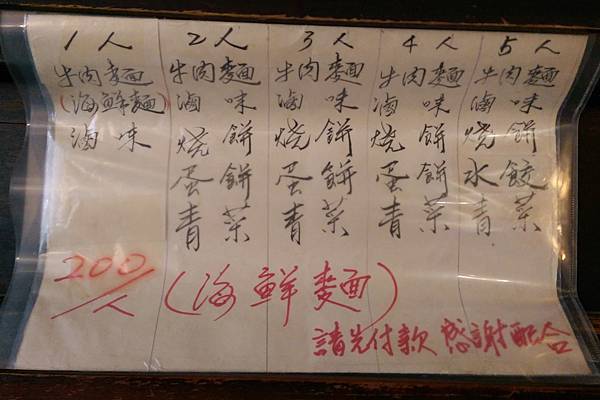 1人 2人 3人 4人 5人
牛肉麵 牛肉麵 牛肉麵 牛肉麵 牛肉麵
(海鮮麵) 滷味 滷味 滷味 滷味
滷味 燒餅 燒餅 燒餅 燒餅
蛋餅 蛋餅 蛋餅 水餃
青菜 青菜 青菜 青菜
200/人 (海鮮麵)
請先付款 感謝配合